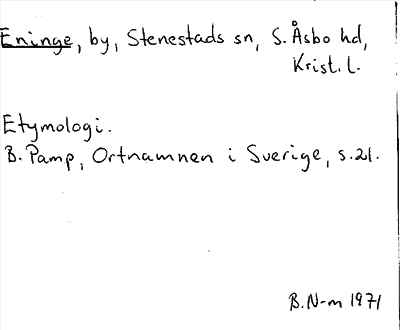 Eninge, by, Stenestads sn, S. Åsbo hd,
Krist. l.
Etymologi.
B. Pamp, Ortnamnen i Sverige, s. 21.
B. N-m 1971